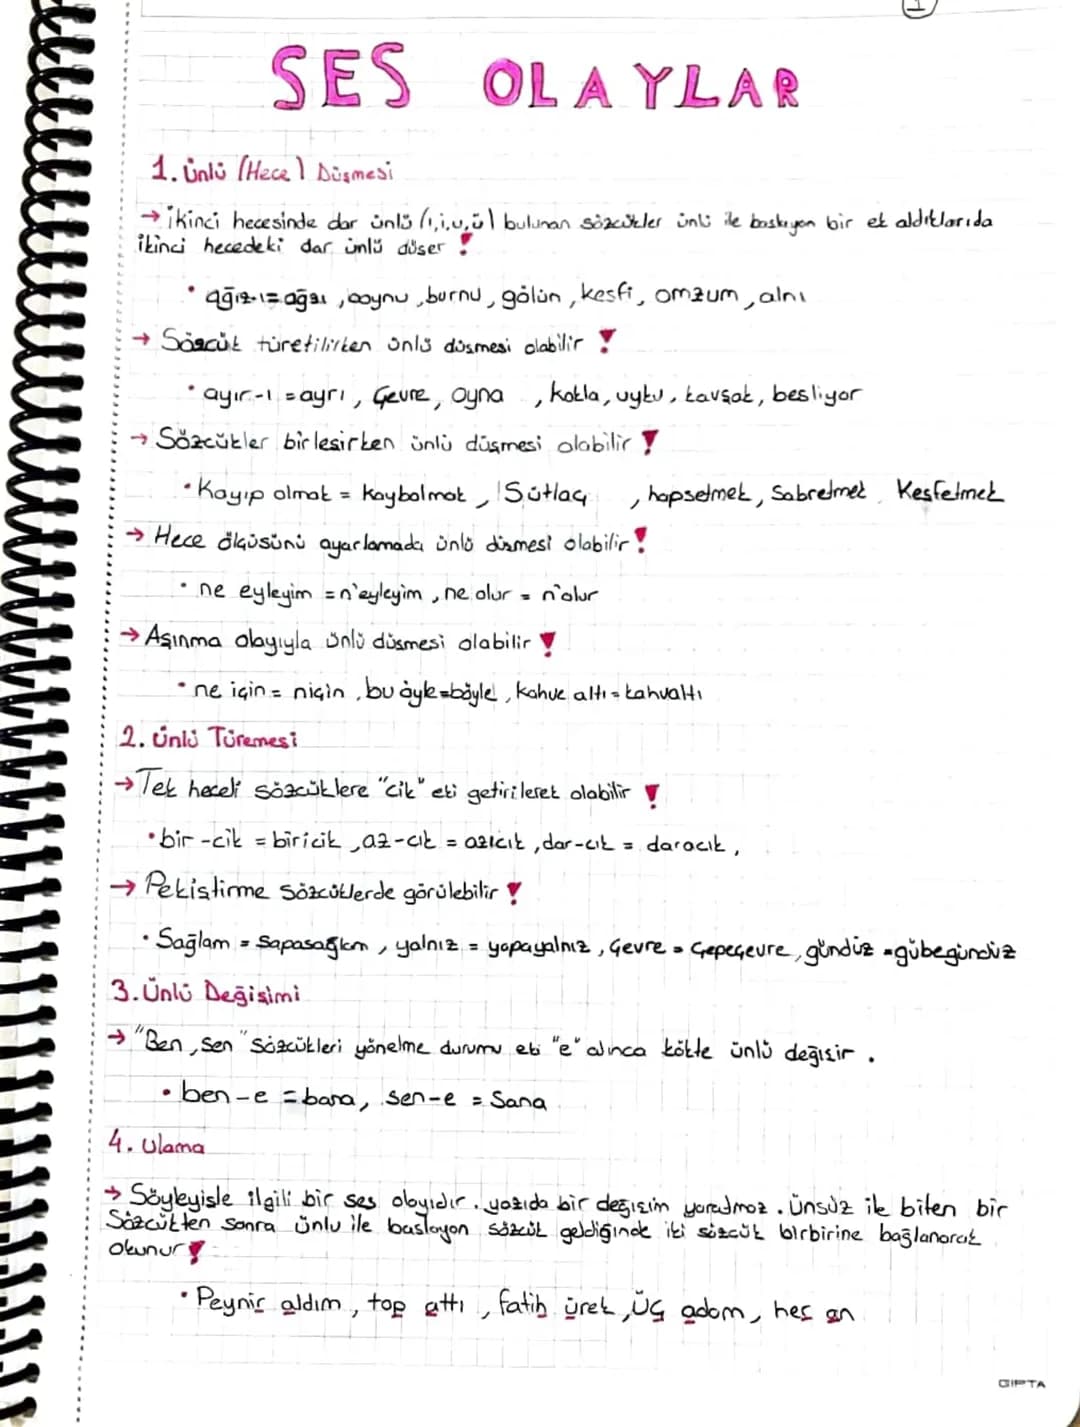 1
SES OLAYLAR
1. Ünlü (Hece) Düşmesi
→ İkinci hecesinde dar ünlü (ı,i,u,ü) bulunan sözcükler ünlü ile başlayan bir ek aldıklarıda
ikinci hecedeki dar ünlü düşer !
• ağız-ı= ağzı, boynu, burnu, gölün, keşfi, omzum, alnı
→ Sözcük türetilirken ünlü düşmesi olabilir !
• ayır-ı = ayrı, Çevre, oyna , kokla, uyku, kavşak, besliyor
→ Sözcükler birleşirken ünlü düşmesi olabilir !
• Kayıp olmak = kaybolmak, Sütlaç , hapsetmek, Sabretmek Keşfetmek
→ Hece ölçüsünü ayarlamada ünlü düşmesi olabilir !
• ne eyleyim = n'eyleyim, ne olur = n'olur
→ Aşınma olayıyla ünlü düşmesi olabilir !
• ne için = niçin, bu öyle=böyle, kahve altı = kahvaltı
2. Ünlü Türemesi
→ Tek heceli sözcüklere "cik" eki getirilerek olabilir !
• bir-cik = biricik, az-cık = azıcık, dar-cık = daracık,
→ Pekiştirme sözcüklerde görülebilir !
• Sağlam = Sapasağlam, yalnız = yapayalnız, Çevre = Çepeçevre, gündüz =gübegündüz
3. Ünlü Değişimi
→ "Ben, sen" sözcükleri yönelme durumu eki "e" alınca kökte ünlü değişir.
• ben-e = bana, sen-e = Sana
4. Ulama
→ Söyleyişle ilgili bir ses olayıdır. yazıda bir değişim yaratmaz. Ünsüz ile biten bir
Sözcükten sonra ünlü ile başlayan sözcük geldiğinde iki sözcük birbirine bağlanarak
okunur !
• Peynir aldım, top attı, fatih ürek, Üç adam, her an
GIPTA